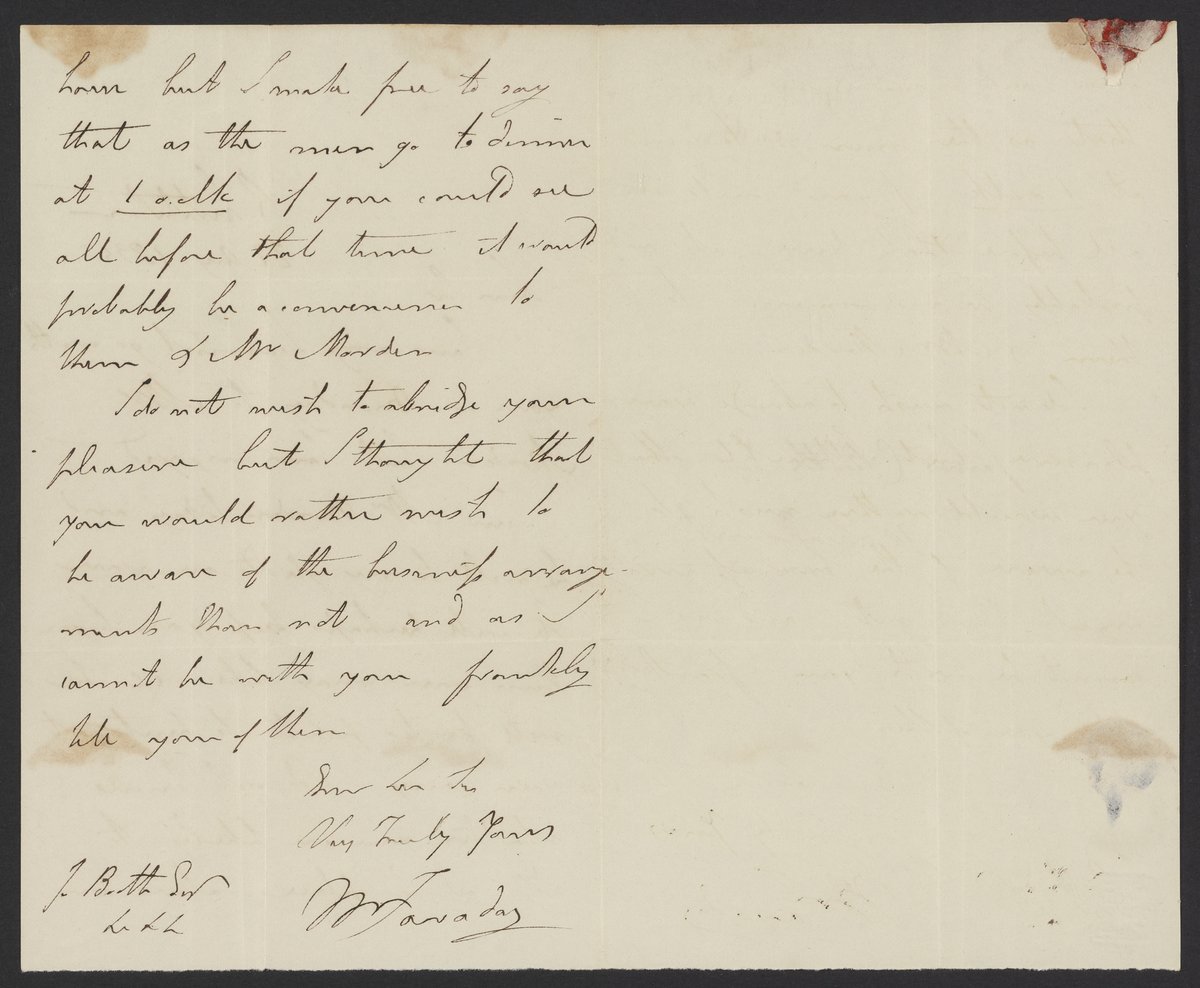 hour but I make free to say
that as the men go to dinner
at 1 o.clk if you could see
all before that time it would
probably be a convenience to
them & Mr Marden
I do not wish to abridge your
pleasure but I thought that
you would rather wish to
be aware of the business arrange-
ments than not and as I
cannot be with you frankly
tell you of them
Ever
Very Truly Yours
M Faraday
J Booth Esqr
&c &c &c